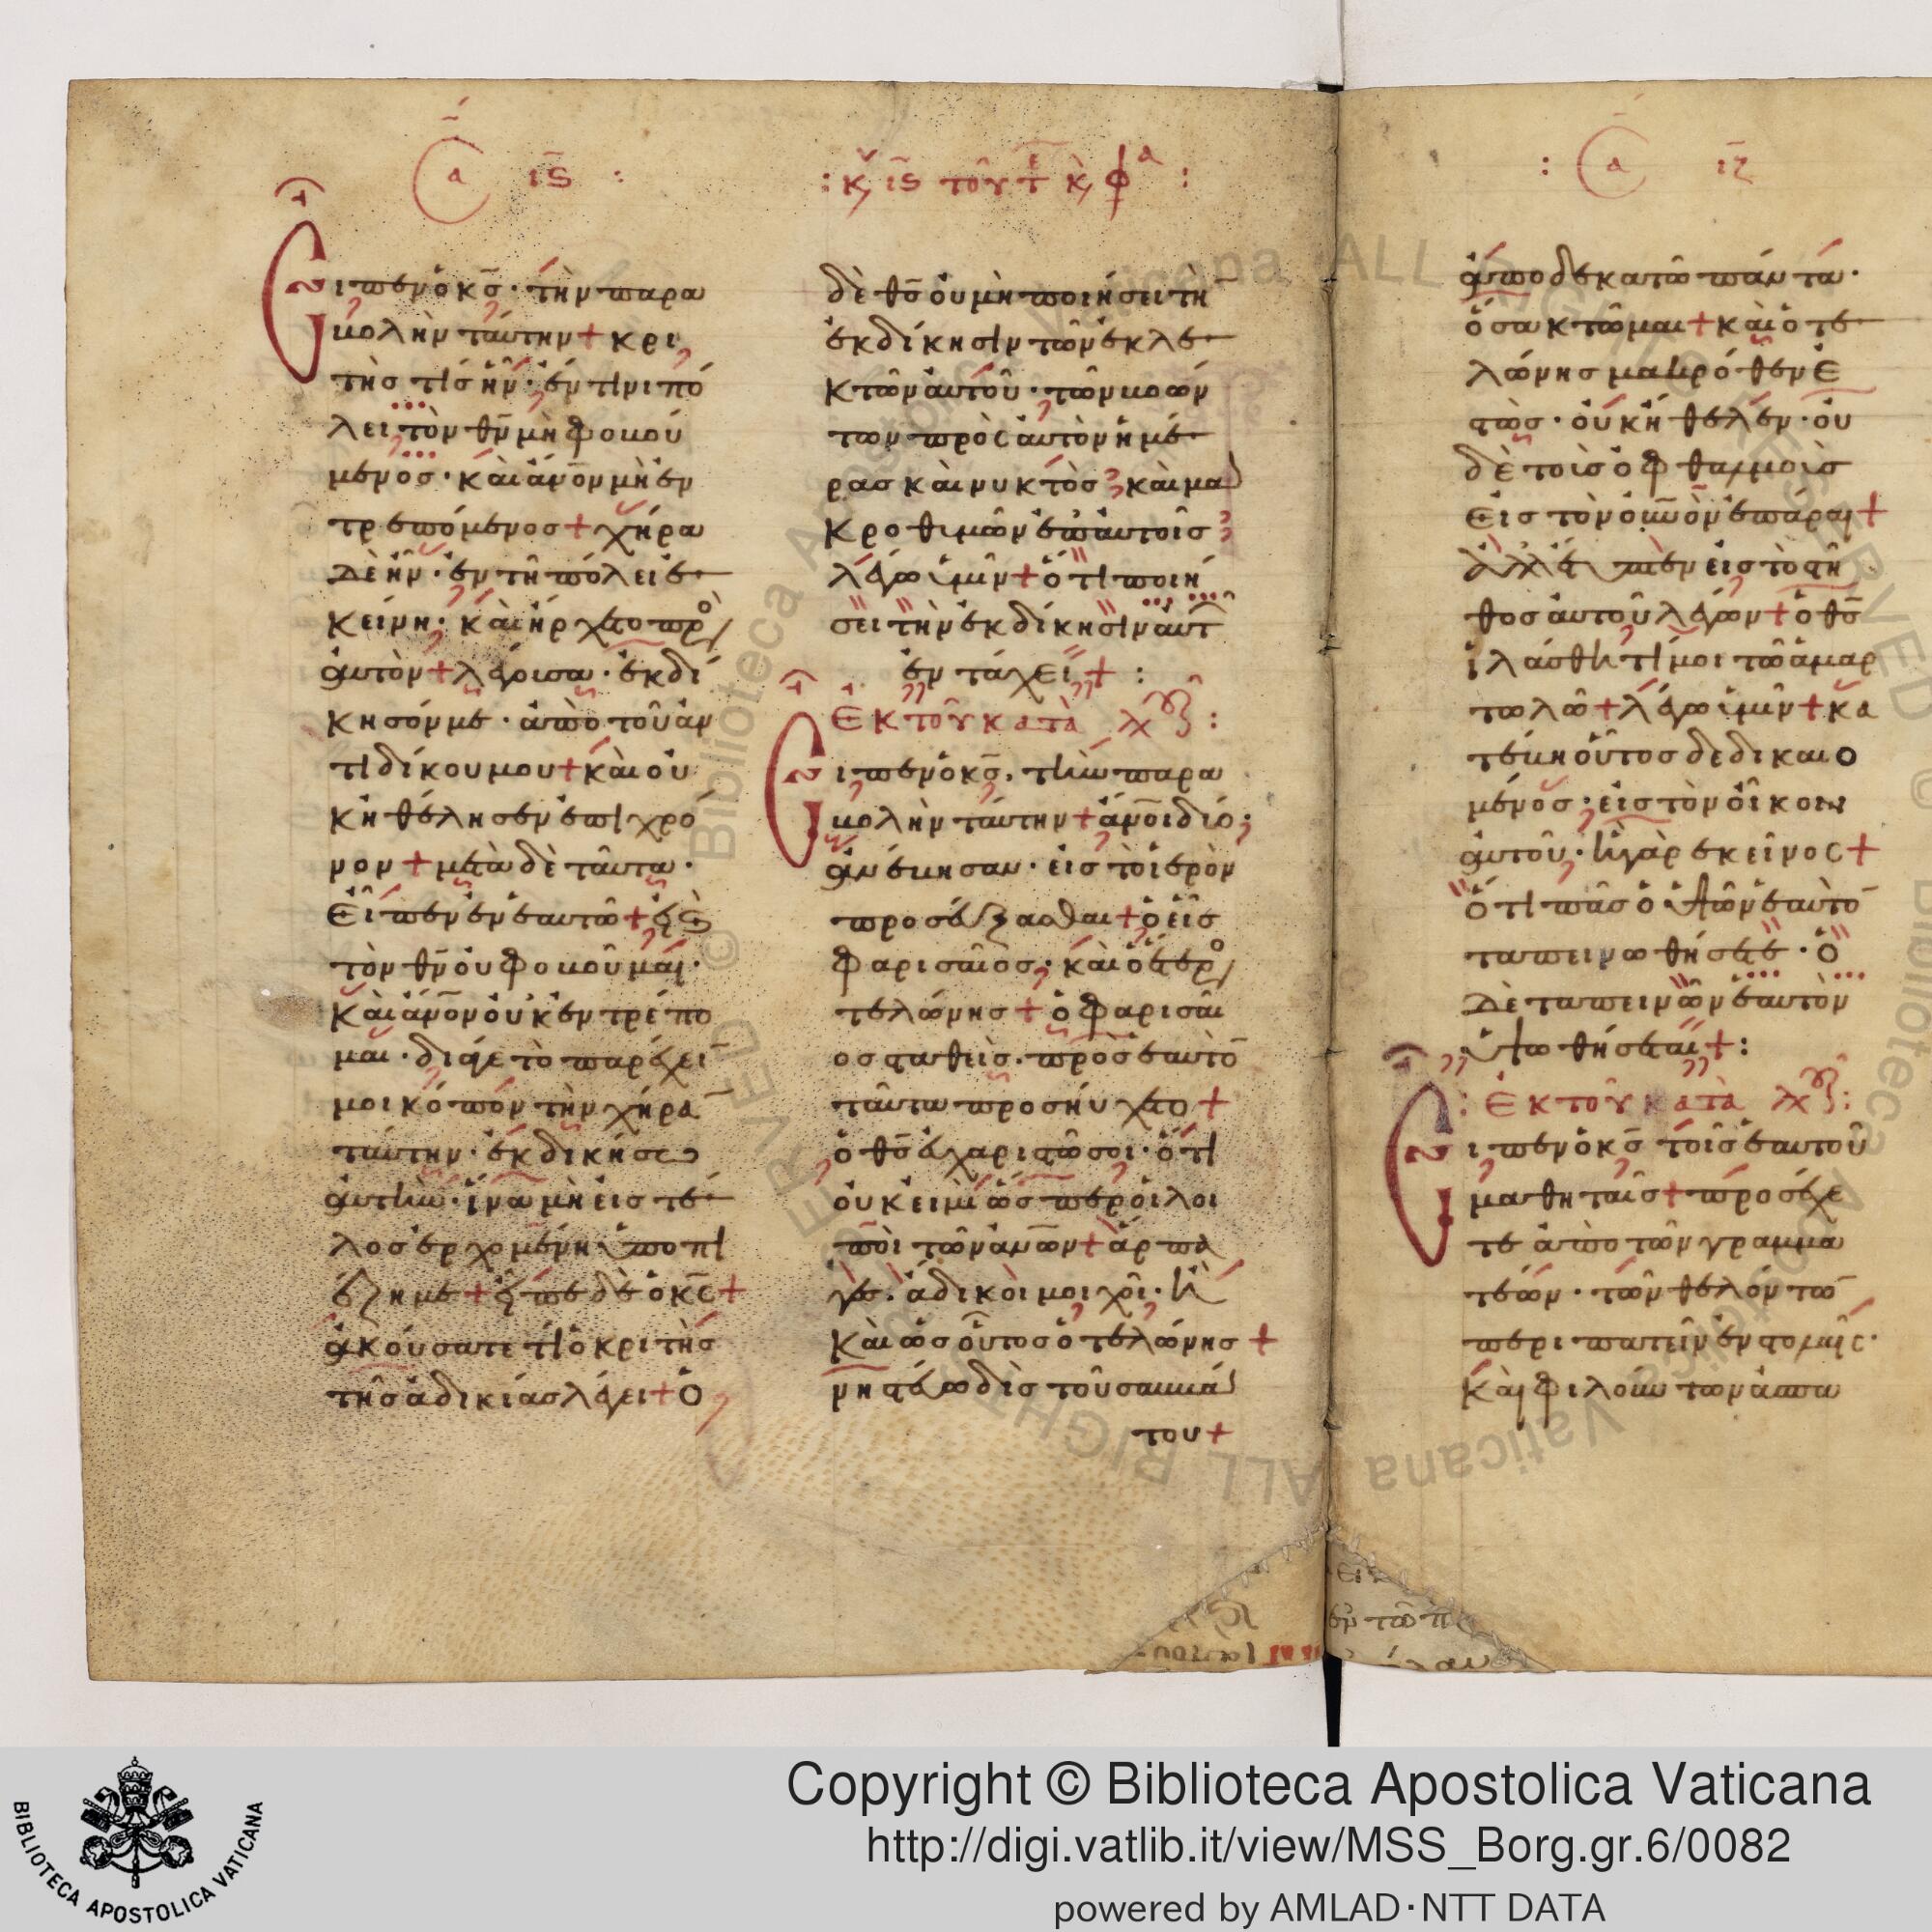 α ιϛ :
: κ, ιϛ τοῦ τε κ, φα :
Εἶπεν ὁ κς · τὴν παρα
βολὴν ταύτην + κρι
τής τίς ἦν · ἔν τινι πό
λει τὸν θν μὴ φοβού
μενος · καὶ ἀνον μὴ ἐν
τρεπόμενος + χήρα
δὲ ἦν · ἐν τῆ πόλει ἐ
κείνη · καὶ ἤρχετο πρ
αὐτὸν + λέγουσα · ἐκδί
κησόν με · ἀπὸ τοῦ ἀν
τιδίκου μου + καὶ οὐ
κ ἠθέλησεν ἐπὶ χρό
νον + μετὰ δὲ ταῦτα ·
Εἶπεν ἐν ἑαυτῶ +
τὸν θν οὐ φοβοῦμαι ·
Καὶ ἀνον οὐκ ἐντρέπο
μαι · διάγε τὸ παρέχει
μοι κόπον τὴν χήρα
ταύτην · ἐκδικήσω
αὐτὴν · ἵνα μὴ εἰς τέ
λος ἐρχομένη ὑποπι
έζη με + εἶπε δὲ ὁ κς +
ἀκούσατε τί ὁ κριτὴς
τῆς ἀδικίας λέγει + Ὁ
δὲ θς οὐ μὴ ποιήσει τὴ
ἐκδίκησιν τῶν ἐκλε
κτῶν αὐτοῦ · τῶν βοών
των πρὸς αὐτὸν ἡμέ
ρας καὶ νυκτὸς καὶ μα
κροθυμῶν ἐπ αὐτοῖς
λέγω ὑμῖν + ὅτι ποιή
σει τὴν ἐκδίκησιν αὐτ
ἐν τάχει + :
Ἐκ τοῦ κατὰ λχ :
Εἶπεν ὁ κς · τὴν παρα
βολὴν ταύτην + ἄνοι δύο
ἀνέβησαν · εἰς τὸ ἱερὸν
προσεύξασθαι + ὁ εἷς
Φαρισαῖος · καὶ ὁ ἕτερ
τελώνης + ὁ φαρισαῖ
ος σταθεὶς · πρὸς ἑαυτὸ
ταῦτα προσηύχετο +
ὁ θς εὐχαριστῶ σοι · ὅτι
οὐκ εἰμὶ ὥσπερ οἱ λοι
ποὶ τῶν ἀνων + ἅρπα
γες · ἄδικοι μοιχοί · ἢ
Καὶ ὡς οὗτος ὁ τελώνης +
νηστεύω δὶς τοῦ σαββά
του +
: α ιζ
ἀποδεκατῶ πάντα ·
ὅσα κτῶμαι + καὶ ὁ τε
λώνης μακρόθεν ἑ
στὼς · οὐκ ἤθελεν · οὐ
δὲ τοὺς ὀφθαλμοὺς
Εἰς τὸν οὐνὸν ἐπάραι +
ἀλλ ἔτυπτεν εἰς τὸ στῆ
θος αὐτοῦ λέγων + ὁ θς
ἱλάσθητί μοι τῶ ἁμαρ
τωλῶ + λέγω ὑμῖν + κα
τέβη οὗτος δεδικαιο
μένος · εἰς τὸν οἶκον
αὐτοῦ · ἢ γὰρ ἐκεῖνος +
Ὅτι πᾶς ὁ ὑψῶν ἑαυτὸ
ταπεινωθήσεται · Ὁ
δὲ ταπεινῶν ἑαυτὸν
ὑψωθήσεται + :
: Ἐκ τοῦ κατὰ λχ :
Εἶπεν ὁ κς τοῖς ἑαυτοῦ
μαθηταῖς + προσέχε
τε ἀπὸ τῶν γραμμα
τέων · τῶν θελόντω
περιπατεῖν ἐν στολαῖς ·
Καὶ φιλούντων ἀσπα
ἐν τῶ π
Copyright © Biblioteca Apostolica Vaticana
http://digi.vatlib.it/view/MSS_Borg.gr.6/0082
powered by AMLAD·NTT DATA
BIBLIOTECA APOSTOLICA VATICANA